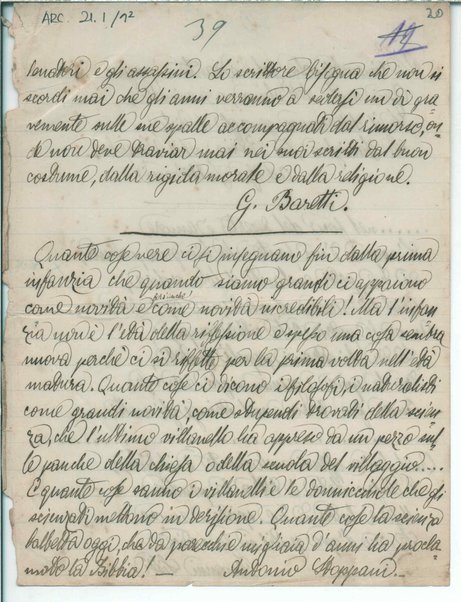 ARC. 21. I / 12
20
39
19
senatori e gli assassini. Lo scrittore bisogna che non si
scordi mai che gli anni verranno a sedersi un dì gra-
vemente sulle sue spalle accompagnati dal rimorso, on-
de non deve traviar mai nei suoi scritti dal buon
costume, dalla rigida morale e dalla religione.
G. Baretti.
Quante cose vere ci si insegnano fin dalla prima
infanzia che quando siamo grandi ci appaiono
come novità e come novità incredibili! Ma l'infan-
zia non è l'età della riflessione e spesso una cosa sembra
nuova perchè ci si riflette per la prima volta nell'età
matura. Quante cose ci dicono i filosofi, i naturalisti
come grandi novità, come stupendi trovati della scien-
za, che l'ultimo villanello ha appreso da un pezzo sul-
le panche della chiesa o della scuola del villaggio....
E quante cose sanno i villanelli e le donnicciuole che gli
scienziati mettono in derisione. Quante cose la scienza
balbetta oggi, che da parecchie migliaia d'anni ha procla-
mato la Bibbia! — Antonio Stoppani.